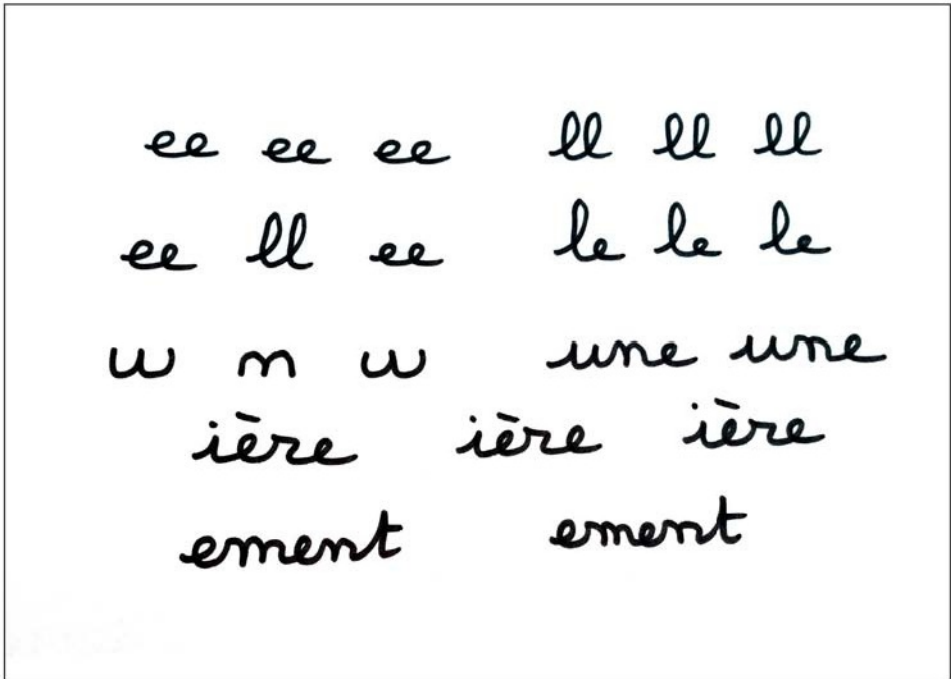 ee ee ee ll ll ll
ee ll ee le le le
w m w une une
ière ière ière
ement ement